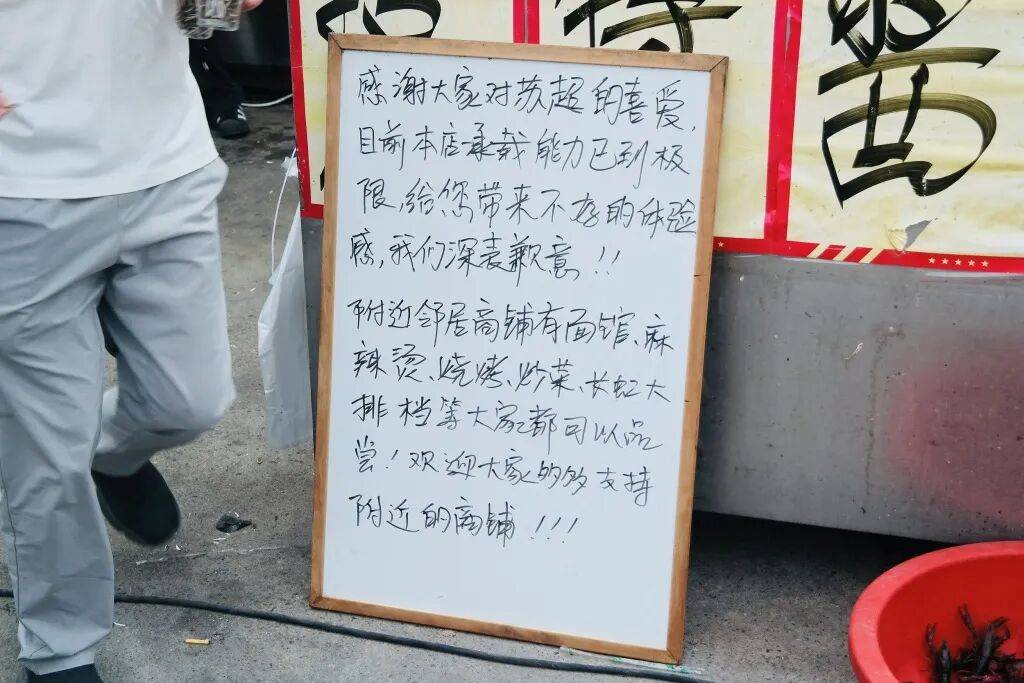 感谢大家对苏超的喜爱,
目前本店承载能力已到极
限,给您带来不好的体验
感,我们深表歉意!!
附近邻居商铺有面馆、麻
辣烫、烧烤、炒菜、长虹大
排档等大家都可以品
尝!欢迎大家的多支持
附近的商铺!!!